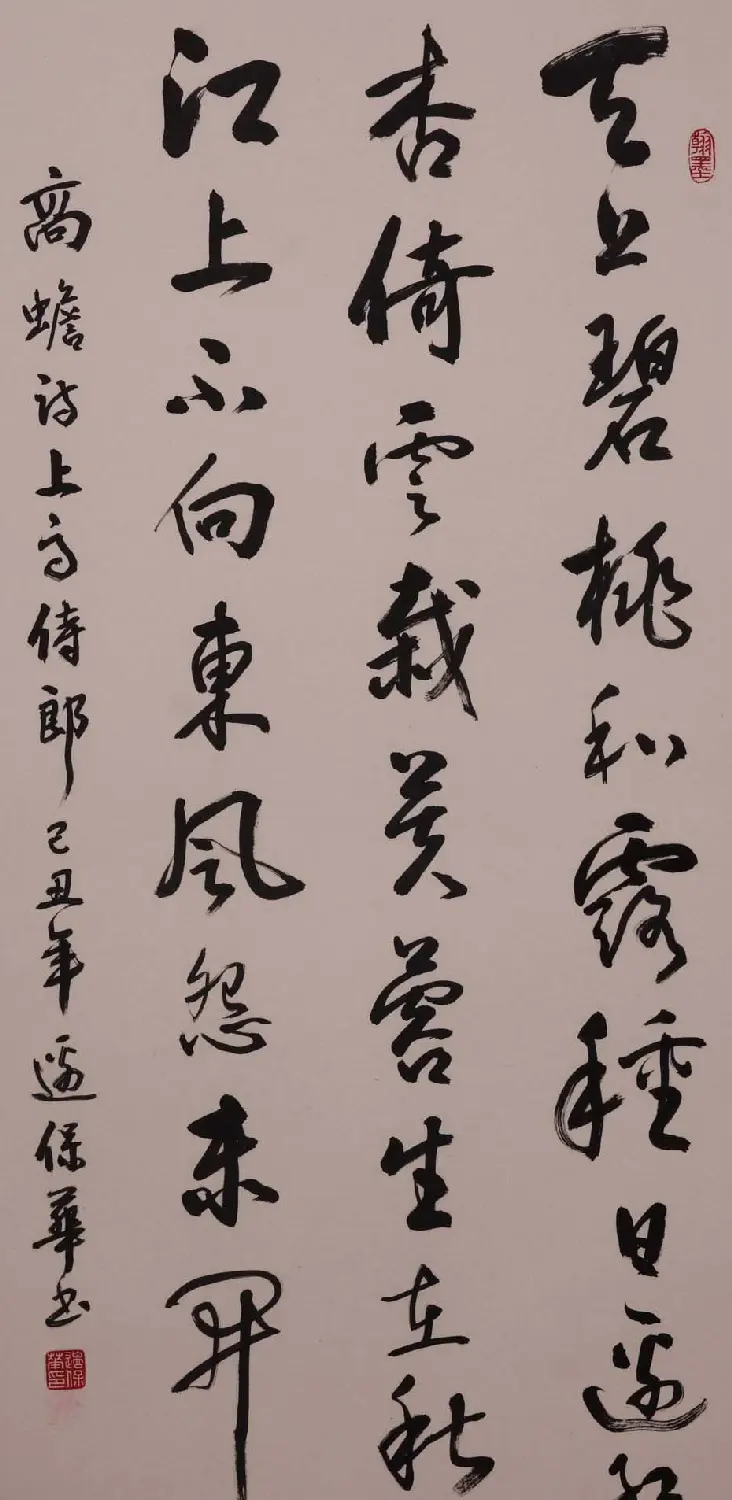 翰墨
天上碧桃和露種日邊紅
杏倚雲栽芙蓉生在秋
江上不向東風怨未開
高蟾詩上高侍郎己丑年邊保華書
邊保華印